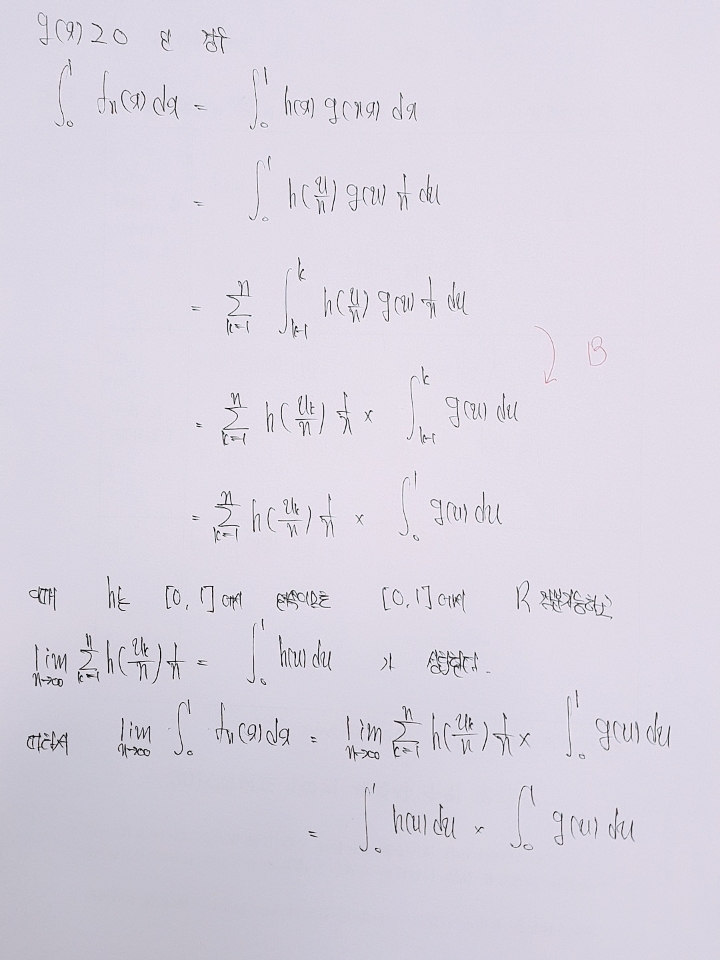 g(x)≥0 인 경우
∫₀¹ fₙ(x)dx = ∫₀¹ h(x) g(nx) dx
= ∫₀¹ h(u/n) g(u) 1/n du
= Σₖ₌₁ⁿ ∫ₖ₋₁ᵏ h(u/n) g(u) 1/n du
B
= Σₖ₌₁ⁿ h(uₖ/n) 1/n × ∫ₖ₋₁ᵏ g(u) du
= Σₖ₌₁ⁿ h(uₖ/n) 1/n × ∫₀¹ g(u) du
이때 h는 [0,1]에서 연속이므로 [0,1]에서 R 적분가능하고
lim n→∞ Σₖ₌₁ⁿ h(uₖ/n) 1/n = ∫₀¹ h(u) du 가 성립한다.
따라서 lim n→∞ ∫₀¹ fₙ(x)dx = lim n→∞ Σₖ₌₁ⁿ h(uₖ/n) 1/n × ∫₀¹ g(u) du
= ∫₀¹ h(u) du × ∫₀¹ g(u) du